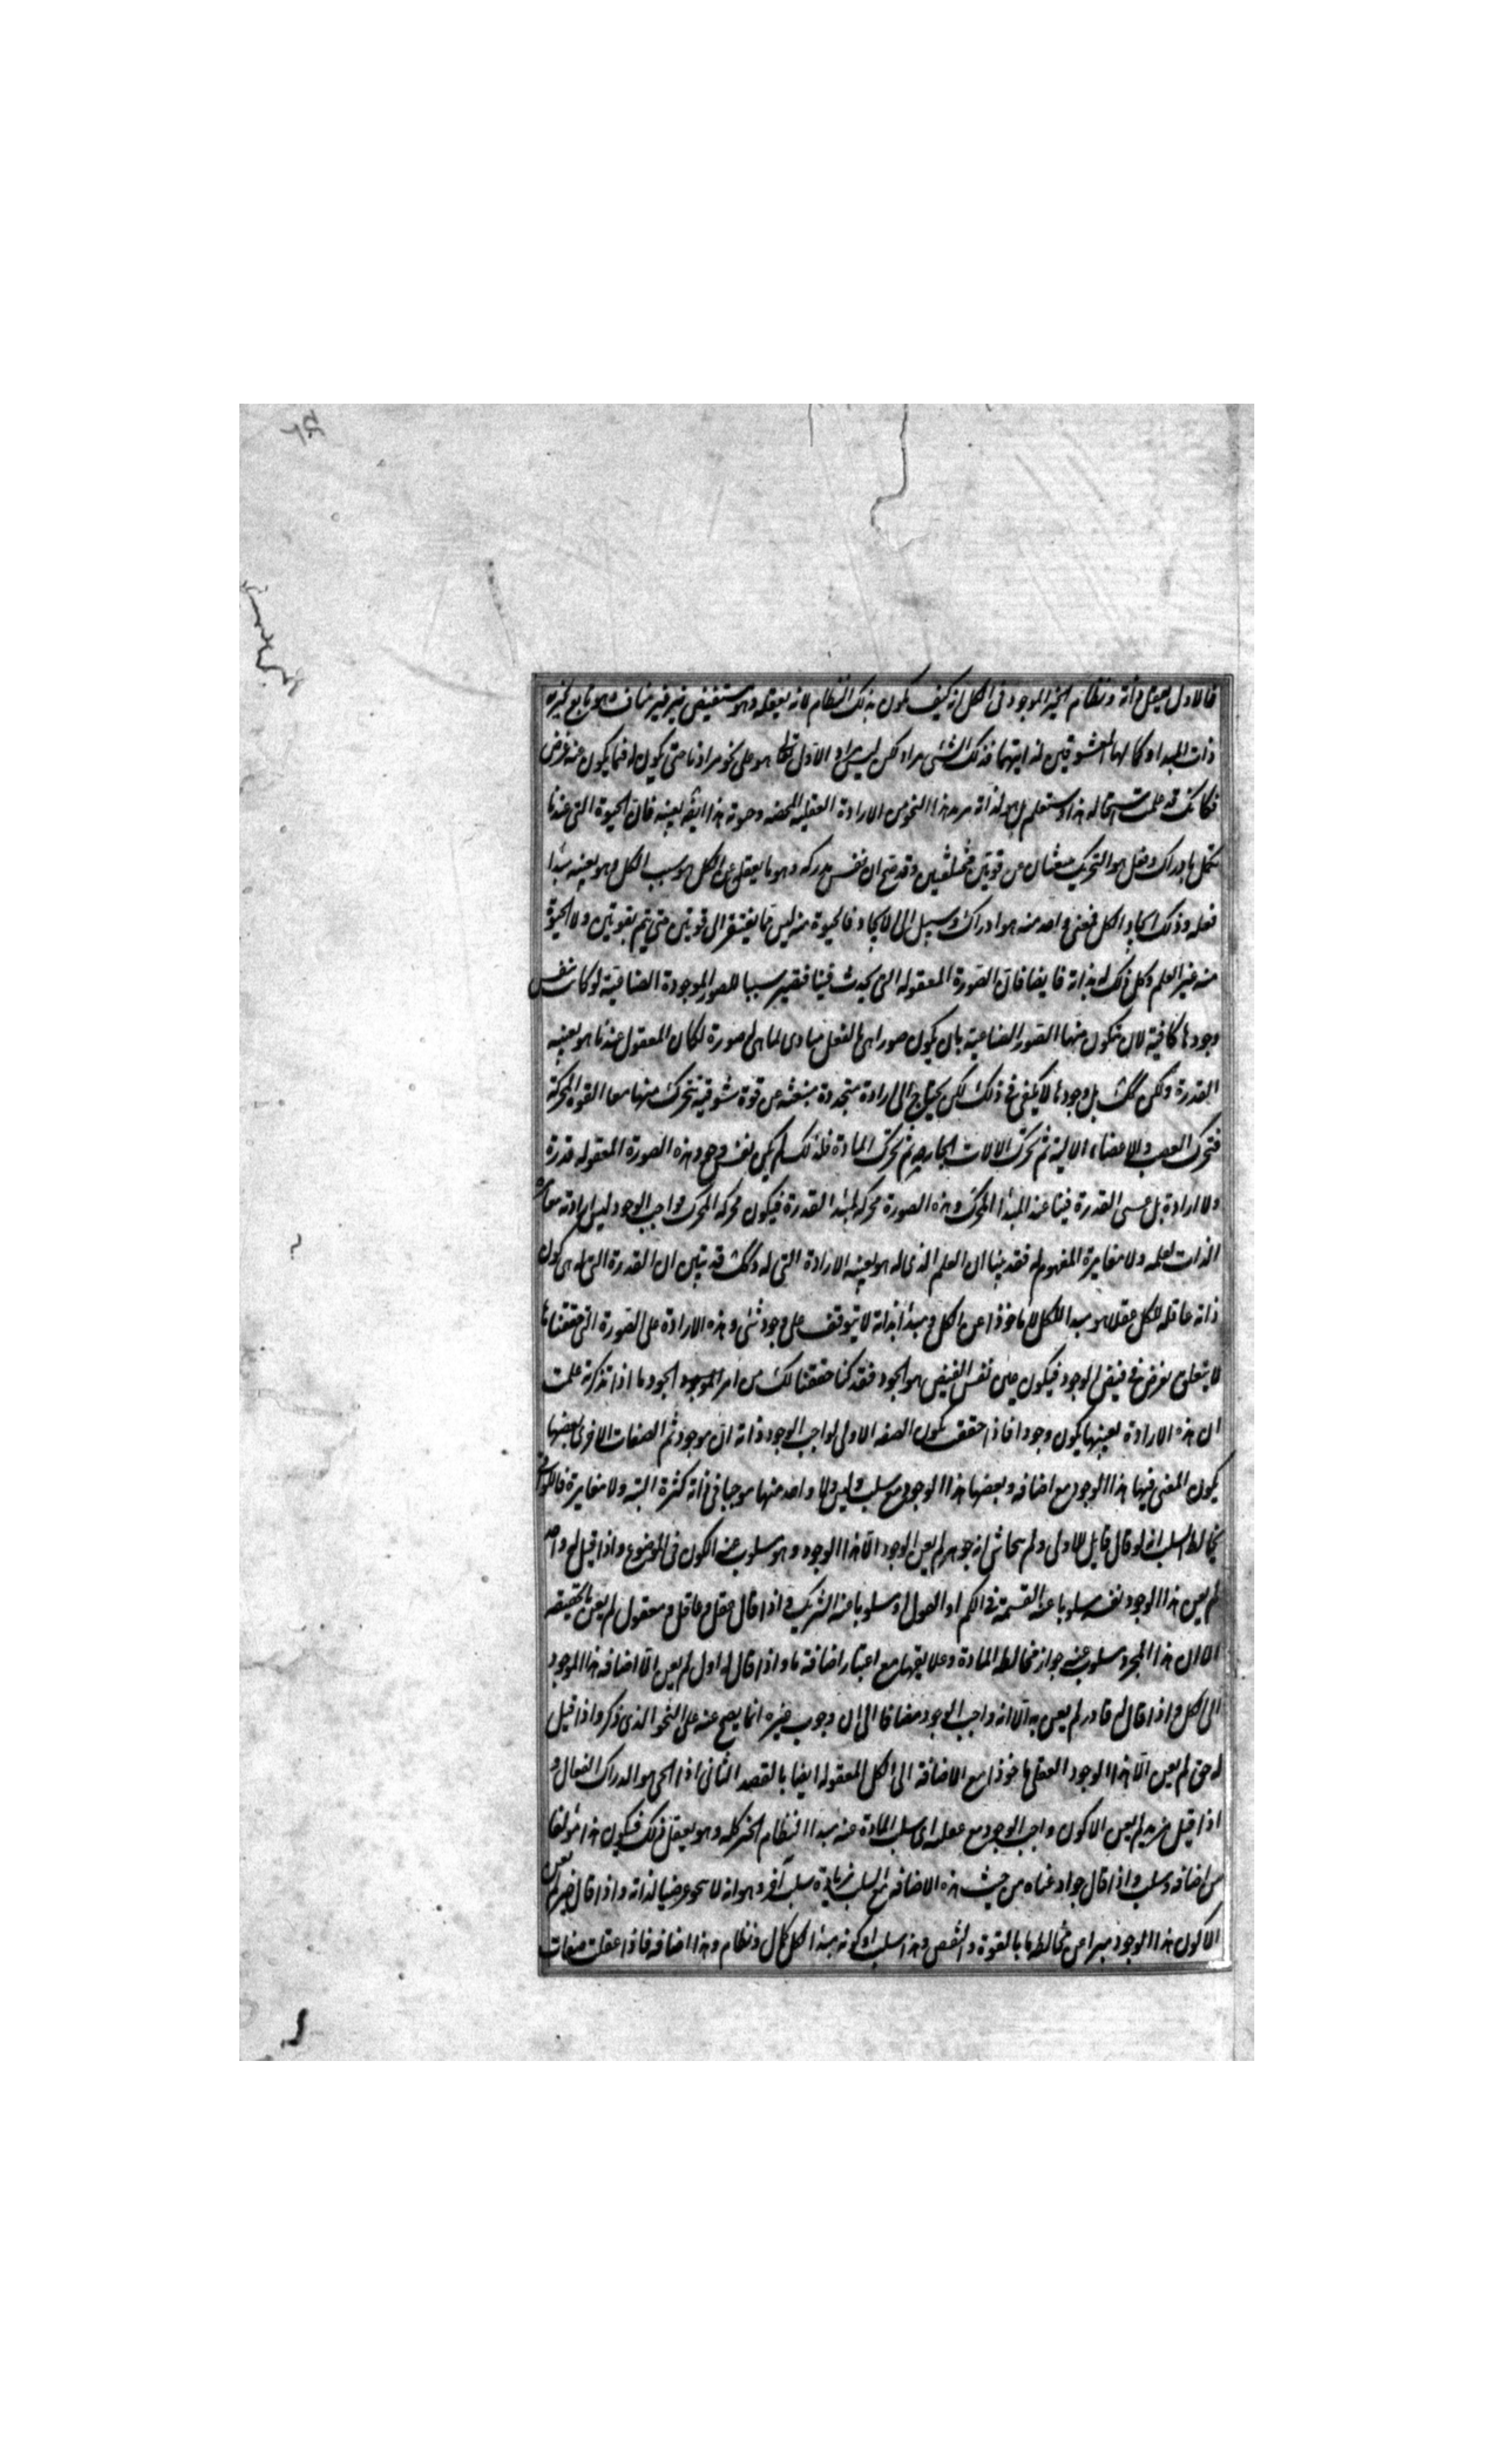 فالاول يعقل ذاته ونظام الخير الموجود فى الكل انه كيف يكون بذلك النظام لانه يعقله وهو مستفيض غير منافٍ وهو تابع لخيرية
ذات المبدا وكمالها المعشوقين لذاتيهما فذلك الشئ مراد لكن ليس مراد الاول هو على نحو مرادنا حتى يكون له فيما يكون عنه غرض
فكانك قد علمت استحالة هذا وستعلم بل هو لذاته مريد هذا النحو من الارادة العقلية المحضه وحيوته هذا ايضا بعينه فان الحيوة التى عندنا
تكمل بادراك وفعل هو التحريك ينبعثان عن قوتين مختلفتين وقد صح ان نفس مدركه وهو ما يعقل عن الكل هو سبب الكل وهو بعينه مبدا
فعله وذلك ايجاد الكل فمعنى واحد منه هو ادراك وسبيل الى الايجاد فالحيوة منه ليس مما يفتقر الى قوتين حتى يتم بقوتين ولا الحيوة
منه غير العلم وكل ذلك له بذاته فايضا فان الصورة المعقوله التى يحدث فينا فتصير سببا للصور الموجودة الصناعية لو كانت نفس
وجودها كافية لان يتكون منها الصور الصناعية بان يكون صورا هى بالفعل مبادى لما هى له صورة لكان المعقول عندنا هو بعينه
القدرة ولكن ليس كذلك بل وجودها لا يكفى فى ذلك لكن يحتاج الى ارادة متجددة منبعثه من قوة شوقية تتحرك منها معا القوة المحركة
فتحرك العصب والاعضاء الالية ثم تحرك الالات الخارجه ثم تحرك المادة فلذلك لم يكن نفس وجود هذه الصورة المعقوله قدرة
ولا ارادة بل عسى القدرة فينا عند المبدأ المحرك وهذه الصورة محركه لمبدا القدرة فيكون محركه المحرك فواجب الوجود ليس ارادته مغايرة
الذات لعلمه ولا مغايرة المفهوم له فقد بينا ان العلم الذى له هو بعينه الارادة التى له وكذلك قد تبين ان القدرة التى له هى كون
ذاته عاقله للكل عقلا هو مبدا للكل لا ماخوذا عن الكل ومبدأ بذاته لا يتوقف على وجود شئ وهذه الارادة على الصورة التى حققناها
لا يتعلق بغرض فى فيض الوجود فيكون غير نفس الفيض هو الجود فقد كنا حققنا لك من امر الجود ما اذا تذكرته علمت
ان هذه الارادة بعينها يكون وجودا فاذا حققت يكون الصفه الاولى لواجب الوجود ذاته ان موجود ثم الصفات الاخرى بعضها
يكون المعنى فيها هذا الوجود مع اضافه وبعضها هذا الوجود مع سلب وليس ولا واحد منها موجبا فى ذاته كثرة البته ولا مغايرة فاللواتى
تخالط السلب انه لو قال قايل للاول ولم يتحاش انه جوهر لم يعن الوجود الا هذا الوجود وهو مسلوب عنه الكون فى الموضوع واذا قيل له واحد
لم يعن هذا الوجود نفسه مسلوبا عنه القسمة فى الكم او القول او مسلوبا عنه الشريك فاذا قال عقل وعاقل ومعقول لم يعن بالحقيقه
الا ان هذا المجرد مسلوب عنه جواز مخالطه المادة وعلايقها مع اعتبار اضافة ما واذا قال له اول لم يعن الا اضافه هذا الموجود
الى الكل واذا قال له قادر لم يعن به الا انه واجب الوجود مضافا الى ان وجوب غيره انما يصح عنه على النحو الذى ذكر واذا قيل
له حى لم يعن الا هذا الوجود العقلى ماخوذا مع الاضافة الى الكل المعقوله ايضا بالقصد الثانى اذ الحى هو الدراك الفعال و
اذا قيل مريد لم يعن الا كون واجب الوجود مع عقله اى سلب المادة عنه مبدا النظام الخير كله وهو يعقل ذلك فيكون هذا مولفا
من اضافه وسلب واذا قال جواد عناه من حيث هذه الاضافه مع السلب بزيادة سلب آخر وهو انه لا ينحو غرضا لذاته واذا قال خير لم يعن
الا كون هذا الوجود مبرا عن مخالطه ما بالقوة والنقص وهذا سلب او كونه مبدا لكل كمال ونظام وهذا اضافه فاذا عقلت صفات